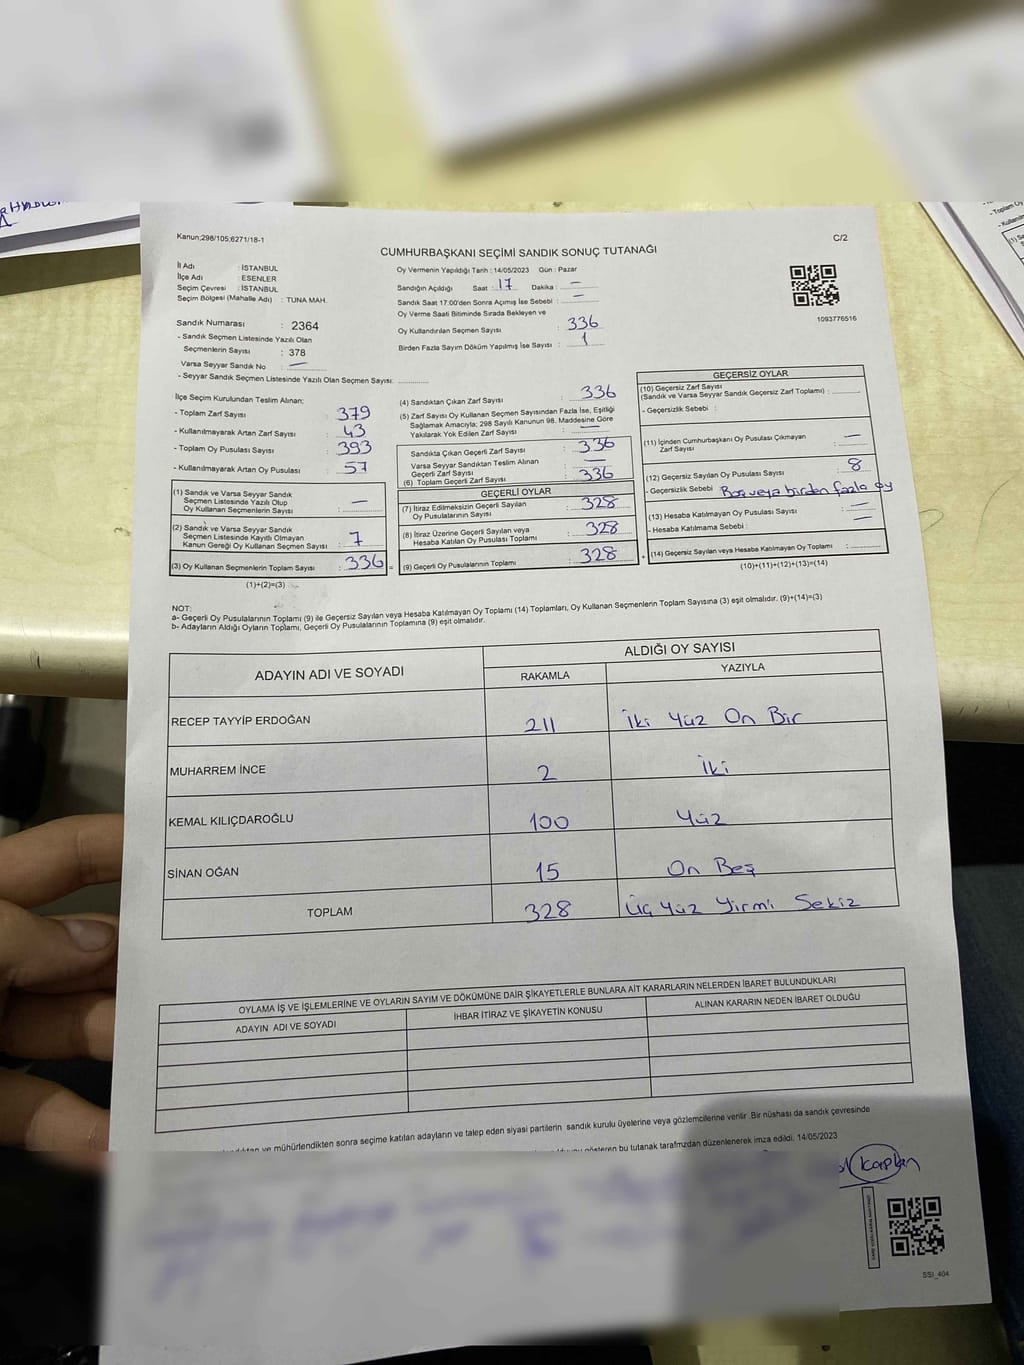 Kanun;298/105;6271/18-1
C/2
CUMHURBAŞKANI SEÇİMİ SANDIK SONUÇ TUTANAĞI
İl Adı : İSTANBUL
İlçe Adı : ESENLER
Seçim Çevresi : İSTANBUL
Seçim Bölgesi (Mahalle Adı) : TUNA MAH.
Sandık Numarası : 2364
- Sandık Seçmen Listesinde Yazılı Olan
Seçmenlerin Sayısı : 378
Varsa Seyyar Sandık No : —
- Seyyar Sandık Seçmen Listesinde Yazılı Olan Seçmen Sayısı:
Oy Vermenin Yapıldığı Tarih : 14/05/2023 Gün : Pazar
Sandığın Açıldığı Saat : 17 Dakika : —
Sandık Saat 17:00'den Sonra Açılmış İse Sebebi : —
Oy Verme Saati Bitiminde Sırada Bekleyen ve
Oy Kullandırılan Seçmen Sayısı : 336
Birden Fazla Sayım Döküm Yapılmış İse Sayısı : 1
1093776516
İlçe Seçim Kurulundan Teslim Alınan:
- Toplam Zarf Sayısı : 379
- Kullanılmayarak Artan Zarf Sayısı : 43
- Toplam Oy Pusulası Sayısı : 393
- Kullanılmayarak Artan Oy Pusulası : 57
(1) Sandık ve Varsa Seyyar Sandık
Seçmen Listesinde Yazılı Olup
Oy Kullanan Seçmenlerin Sayısı : —
(2) Sandık ve Varsa Seyyar Sandık
Seçmen Listesinde Kayıtlı Olmayan
Kanun Gereği Oy Kullanan Seçmen Sayısı : 7
(3) Oy Kullanan Seçmenlerin Toplam Sayısı : 336 =
(1)+(2)=(3)
(4) Sandıktan Çıkan Zarf Sayısı : 336
(5) Zarf Sayısı Oy Kullanan Seçmen Sayısından Fazla İse, Eşitliği
Sağlamak Amacıyla; 298 Sayılı Kanunun 98. Maddesine Göre
Yakılarak Yok Edilen Zarf Sayısı : —
Sandıkta Çıkan Geçerli Zarf Sayısı : 336
Varsa Seyyar Sandıktan Teslim Alınan
Geçerli Zarf Sayısı : —
(6) Toplam Geçerli Zarf Sayısı : 336
GEÇERLİ OYLAR
(7) İtiraz Edilmeksizin Geçerli Sayılan
Oy Pusulalarının Sayısı : 328
(8) İtiraz Üzerine Geçerli Sayılan veya
Hesaba Katılan Oy Pusulası Toplamı : 328
(9) Geçerli Oy Pusulalarının Toplamı : 328 +
GEÇERSİZ OYLAR
(10) Geçersiz Zarf Sayısı
(Sandık ve Varsa Seyyar Sandık Geçersiz Zarf Toplamı) :
- Geçersizlik Sebebi :
(11) İçinden Cumhurbaşkanı Oy Pusulası Çıkmayan
Zarf Sayısı : —
(12) Geçersiz Sayılan Oy Pusulası Sayısı : 8
- Geçersizlik Sebebi : Boş veya birden fazla oy
(13) Hesaba Katılmayan Oy Pusulası Sayısı : —
- Hesaba Katılmama Sebebi : —
(14) Geçersiz Sayılan veya Hesaba Katılmayan Oy Toplamı :
(10)+(11)+(12)+(13)=(14)
NOT:
a- Geçerli Oy Pusulalarının Toplamı (9) ile Geçersiz Sayılan veya Hesaba Katılmayan Oy Toplamı (14) Toplamları, Oy Kullanan Seçmenlerin Toplam Sayısına (3) eşit olmalıdır. (9)+(14)=(3)
b- Adayların Aldığı Oyların Toplamı, Geçerli Oy Pusulalarının Toplamına (9) eşit olmalıdır.
ADAYIN ADI VE SOYADI
ALDIĞI OY SAYISI
RAKAMLA YAZIYLA
RECEP TAYYİP ERDOĞAN 211 İki Yüz On Bir
MUHARREM İNCE 2 İki
KEMAL KILIÇDAROĞLU 100 Yüz
SİNAN OĞAN 15 On Beş
TOPLAM 328 Üç Yüz Yirmi Sekiz
OYLAMA İŞ VE İŞLEMLERİNE VE OYLARIN SAYIM VE DÖKÜMÜNE DAİR ŞİKAYETLERLE BUNLARA AİT KARARLARIN NELERDEN İBARET BULUNDUKLARI
ADAYIN ADI VE SOYADI İHBAR İTİRAZ VE ŞİKAYETİN KONUSU ALINAN KARARIN NEDEN İBARET OLDUĞU
ve mühürlendikten sonra seçime katılan adayların ve talep eden siyasi partilerin sandık kurulu üyelerine veya gözlemcilerine verilir .Bir nüshası da sandık çevresinde
gösteren bu tutanak tarafımızdan düzenlenerek imza edildi. 14/05/2023
Kaplan
SSI_404